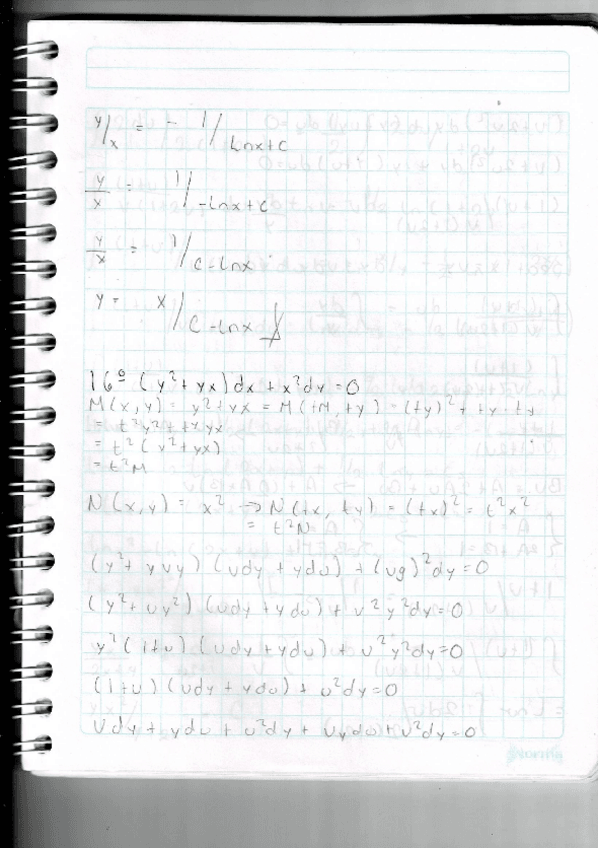 y/x = - 1/Lnx+C
y/x = 1/-Lnx+C
y/x = 1/C-Lnx
y = x/C-Lnx
16º (y²+yx)dx + x²dy = 0
M(x,y) = y²+yx = M(tx, ty) = (ty)² + ty · tx
= t²y² + t²yx
= t²(y²+yx)
= t²M
N(x,y) = x² → N(tx, ty) = (tx)² = t²x²
= t²N
(y² + yvy) (vdy + ydv) + (vy)²dy = 0
(y² + vy²) (vdy + ydv) + v²y²dy = 0
y²(1+v) (vdy + ydv) + v²y²dy = 0
(1+v) (vdy + ydv) + v²dy = 0
vdy + ydv + v²dy + vydv + v²dy = 0
Norma